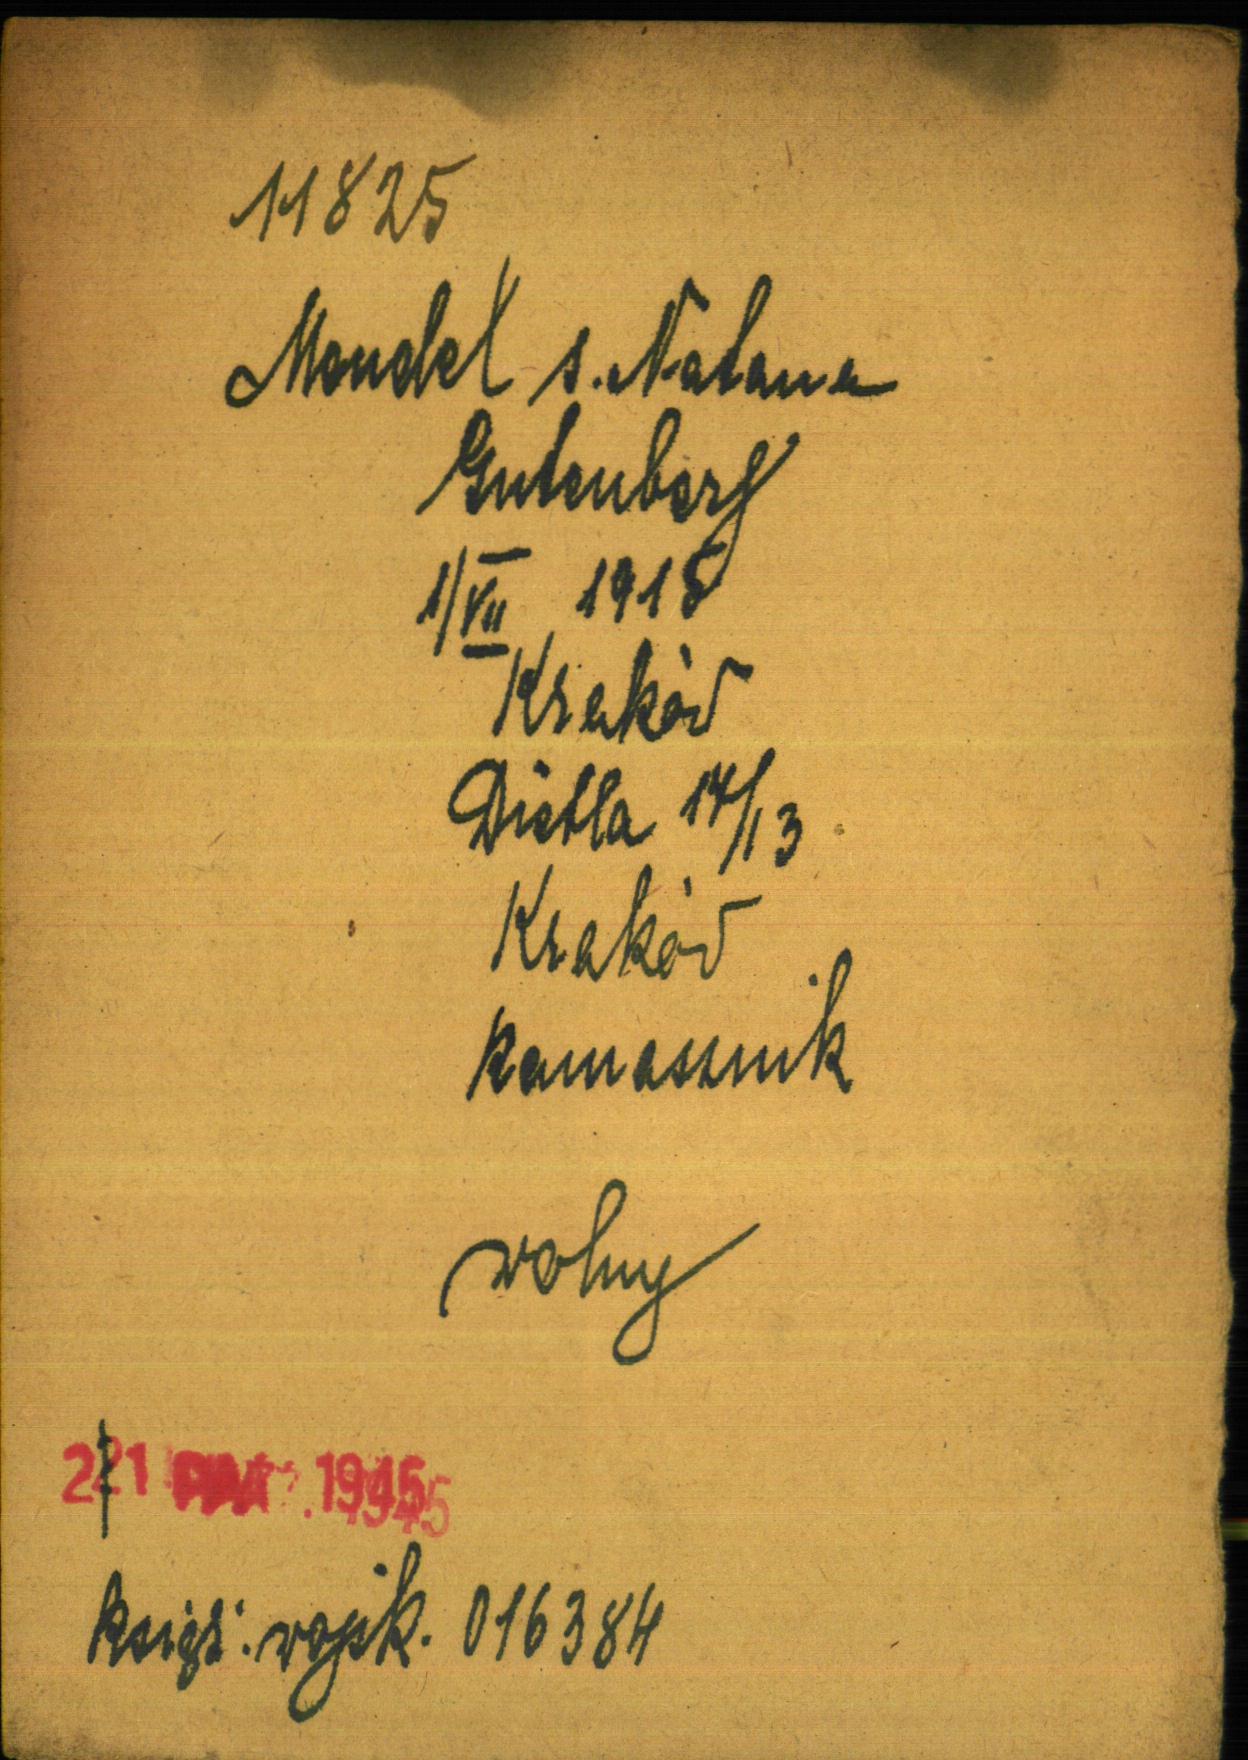 11825
Mendel s. Natana
Gutenberg
1/VII 1918
Kraków
Dietla 14/13
Kraków
kamasznik
wolny
1945
książ. wojsk. 016384